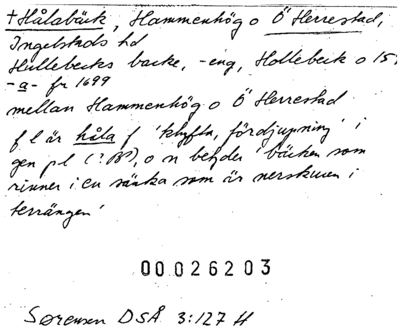 +Hålabäck, Hammenhög o Ö Herrestad,
Ingelstads hd
Hullebecks backe, -eng, Hollebeck o 15,
-a- fr 1699
mellan Hammenhög o Ö Herrestad
f l är håla f 'klyfta, fördjupning' i
gen pl (? BP), o n betyder 'bäcken som
rinner i en sänka som är nerskuren i
terrängen'
00026203
Sørensen DSÅ 3:127 ff